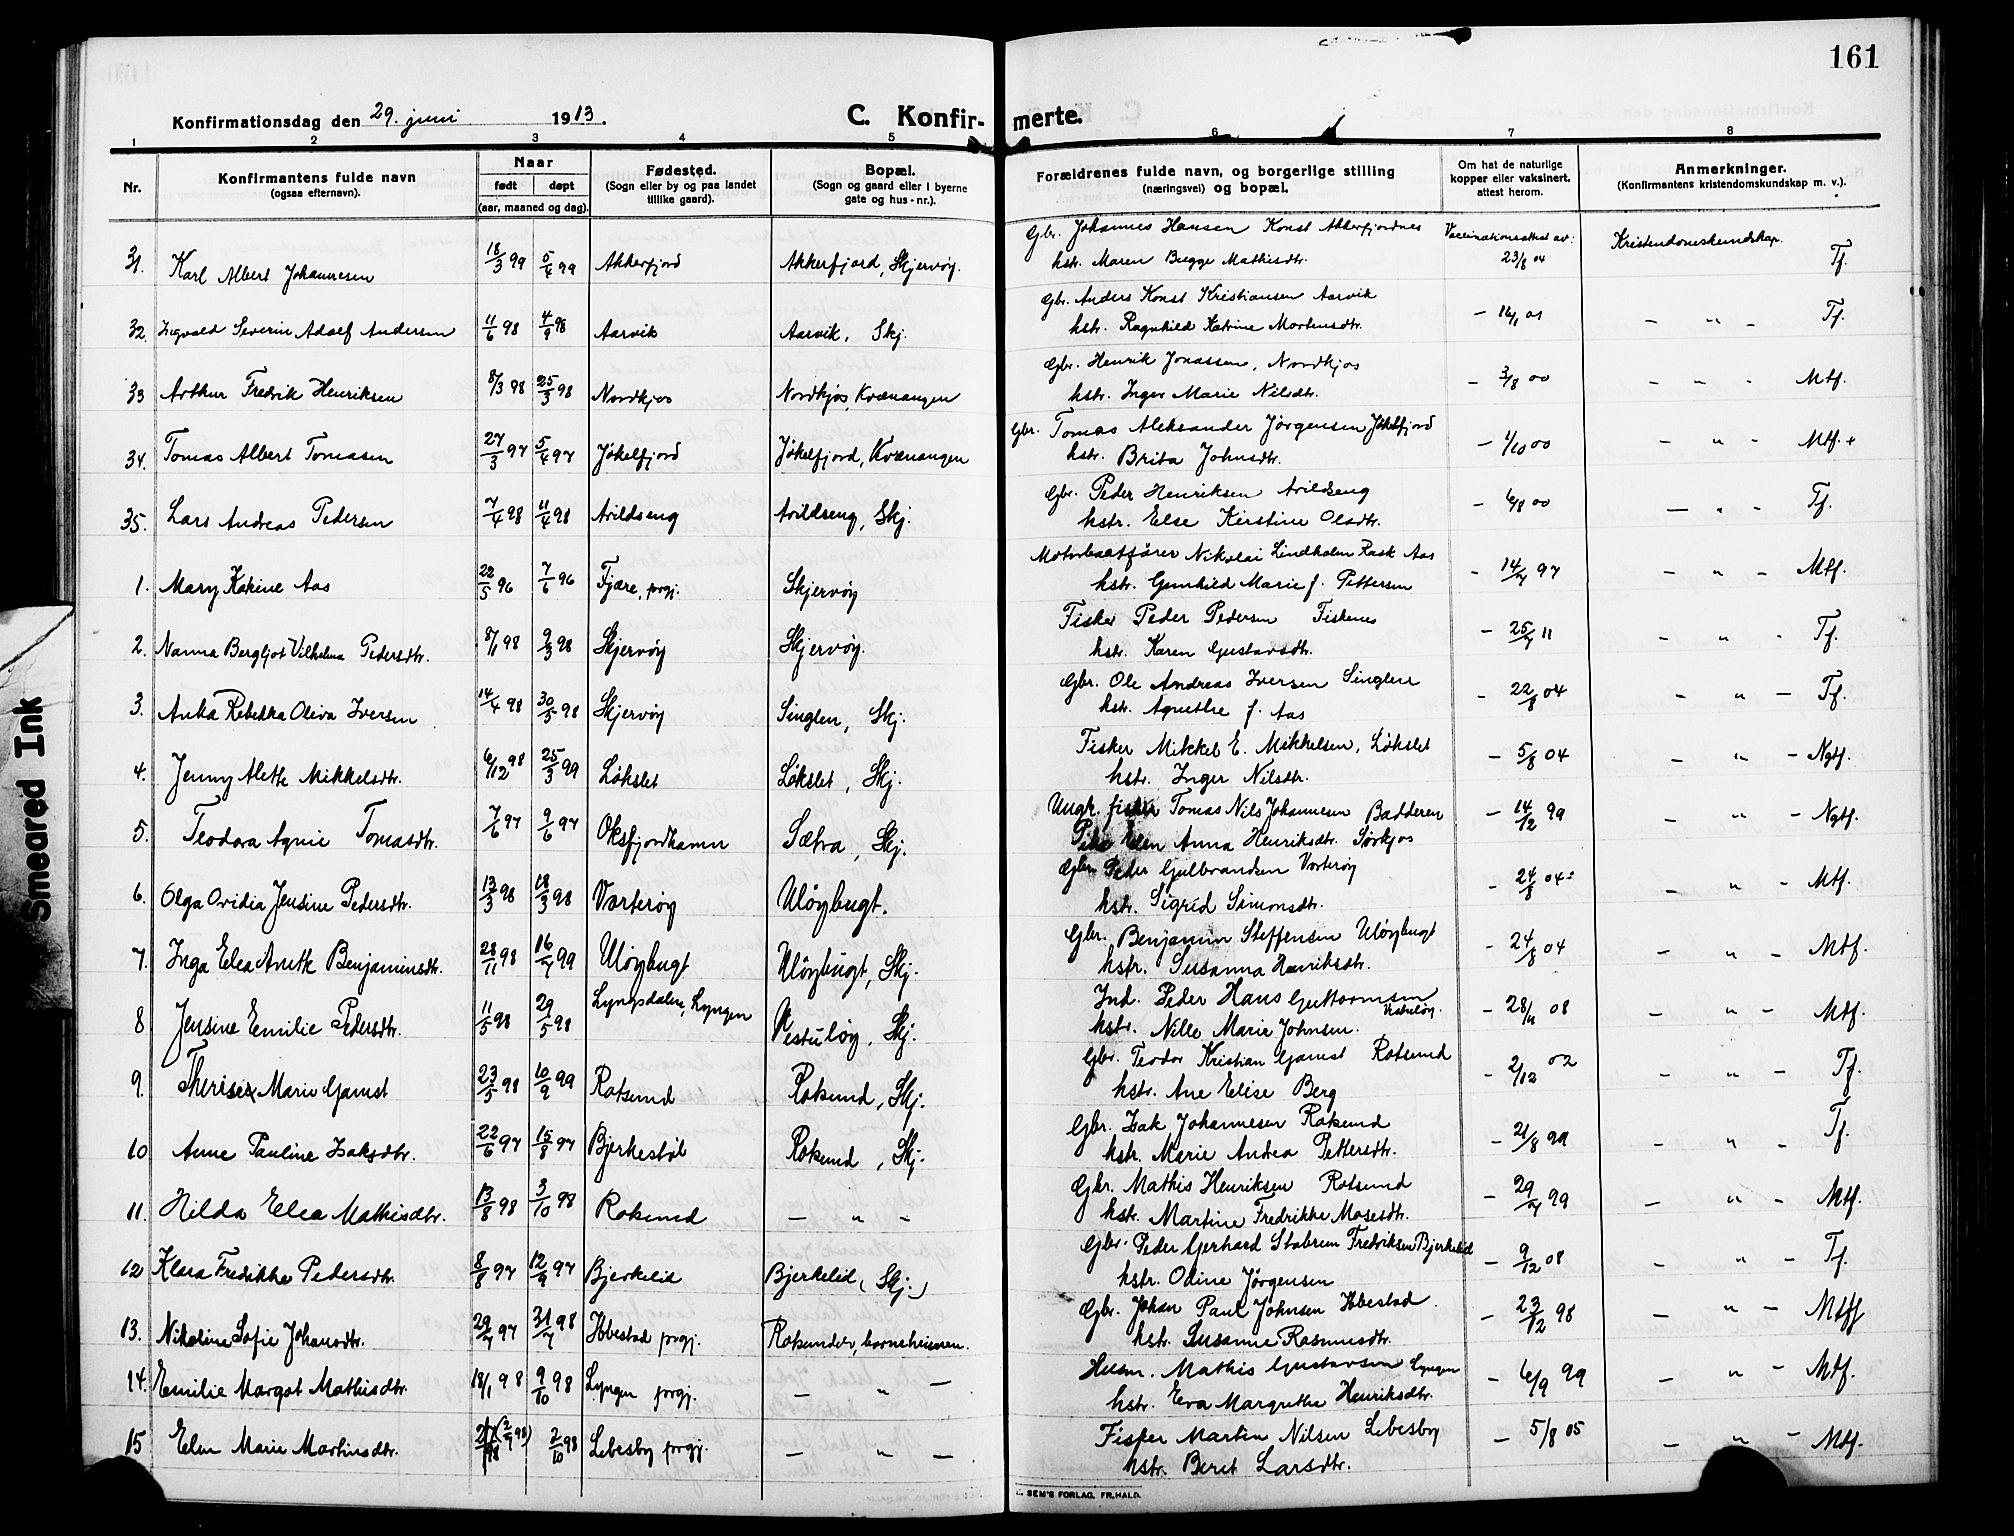 161
Konfirmationsdag den 29. juni 1913.
C. Konfir-merte.
1 2 3 4 5 6 7 8
Nr.
Konfirmantens fulde navn
(ogsaa efternavn).
Naar
født døpt
(aar, maaned og dag).
Fødested.
(Sogn eller by og paa landet
tillike gaard).
Bopæl.
(Sogn og gaard eller i byerne
gate og hus-nr.).
Forældrenes fulde navn, og borgerlige stilling
(næringsvei) og bopæl.
Om hat de naturlige
kopper eller vaksinert.
attest herom.
Anmerkninger.
(Konfirmantens kristendomskundskap m. v.).
31. Karl Albert Johannesen 18/3 99 5/4 99 Akkerfjord Akkerfjord, Skjervøy. Gbr. Johannes Hansen Konst Akkerfjordnes Vaccinationsattest av: Kristendomskundskap.
hstr. Maren Bugge Mathisdtr. 23/8 04 Tf.
32. Ingvald Severin Adolf Andersen 11/6 98 4/9 98 Aarvik Aarvik, Skj. Gbr. Anders Konst Kristiansen Aarvik
hstr. Ragnhild Katrine Mortensdtr. - 16/1 01 - " - Tf.
33 Arthur Fredrik Henriksen 8/3 98 25/3 98 Nordkjos Nordkjos, Kvænangen Gbr. Henrik Jonassen, Nordkjos
hstr. Inger Marie Nilsdtr. - 3/8 00 - " - Mtf.
34. Tomas Albert Tomasen 27/3 97 5/4 97 Jøkelfjord Jøkelfjord, Kvænangen Gbr. Tomas Aleksander Jørgensen Jøkelfjord
hstr. Brita Johnsdtr. - 1/10 00 - " - Mtf. +
35. Lars Andreas Pedersen 7/4 98 11/4 98 Arildseng Arildseng, Skj. Gbr. Peder Henriksen Arildseng
hstr. Else Kirstine Olsdtr. - 6/8 00 - " - Tf.
1. Mary Katrine Aas 22/5 96 7/6 96 Fjære, prgj. Skjervøy Motorbaatfører Nikolai Lindholm Rask Aas
hstr. Gunhild Marie f. Pettersen - 14/7 97 - " - Mtf.
2. Nanna Bergljot Vilhelma Pedersdtr. 8/1 98 9/3 98 Skjervøy Skjervøy. Fisker Peder Pedersen Fiskenes
hstr. Karen Gustavsdtr. - 25/7 11 - " - Tf.
3. Anka Rebekka Oliva Iversen 14/4 98 30/5 98 Skjervøy Singlen, Skj. Gbr. Ole Andreas Iversen Singlen
hstr. Agnethe f. Aas - 22/8 04 - " - Tf.
4. Jenny Alette Mikkelsdtr. 6/12 98 25/3 99 Løkslet Løkslet, Skj. Fisker Mikkel E. Mikkelsen, Løkslet
hstr. Inger Nilsdtr. - 5/8 04 - " - Ngtf.
5. Teodora Agnie Tomasdtr. 7/6 97 9/6 97 Oksfjordhamn Sætra, Skj. Ungk. fisker Tomas Nils Johannesen Badderen
Pike Elen Anna Henriksdtr. Sørkjos - 14/12 99 - " - Ngtf.
6. Olga Ovidia Jensine Pedersdtr. 13/3 98 18/3 98 Vorterøy Uløybugt. Gbr. Peder Gulbrandsen Vorterøy
hstr. Sigrid Simonsdtr. - 24/8 04 - " - Mtf.
7. Inga Elea Anette Benjaminsdtr. 28/11 98 16/7 99 Uløybugt Uløybugt, Skj. Gbr. Benjamin Steffensen Uløybugt
hstr. Susanna Henriksdtr. - 24/8 04 - " - Mtf.
8 Jensine Emilie Pedersdtr. 11/5 98 29/5 98 Lyngsdalen, Lyngen Vestuløy, Skj. Ind. Peder Hans Guttormsen Vestuløy.
hstr. Nille Marie Johnsen. - 28/4 08 - " - Mtf.
9. Therise Marie Gamst 23/5 98 10/9 99 Rotsund Rotsund, Skj. Gbr. Teodor Kristian Gamst Rotsund
hstr. Ane Elise Berg - 2/12 02 - " - Tf.
10 Anne Pauline Isaksdtr. 22/6 97 15/8 97 Bjerkestøl Rotsund, Skj. Gbr. Isak Johannesen Rotsund
hstr. Marie Andrea Pettersdtr. - 21/8 99 - " - Tf.
11. Hilda Elea Mathisdtr. 13/8 98 3/10 98 Rotsund - " - Gbr. Mathis Henriksen Rotsund
hstr. Martine Fredrikke Mosesdtr. - 29/7 99 - " - Mtf.
12 Klara Fredikke Pedersdtr. 8/8 97 12/9 97 Bjerkelid Bjerkelid (Skj.) Gbr. Peder Gerhard Stabrun Fredriksen Bjerkelid
hstr. Odine Jørgensen - 9/12 08 - " - Tf.
13. Nikoline Sofie Johansdtr. 29/7 97 31/7 98 Ibbestad prgj. Rotsundelv, barnehjemmen. Gbr. Johan Paul Johnsen Ibbestad.
hstr. Susanne Rasmusdtr. - 23/12 98 - " - Mtf
14. Emilie Margot Mathisdtr. 18/1 98 9/10 98 Lyngen prgj. - " - Husm. Mathis Gustavsen Lyngen
hstr. Eva Margrethe Henriksdtr. - 6/9 99 - " - Mtf.
15 Elen Marie Martinsdtr. (2/7 98) 2/10 98 Lebesby prgj. - " - Fisker Martin Nilsen Lebesby
hstr. Beret Larsdtr. - 5/8 05 - " - Mtf.
SEM'S FORLAG, FR.HALD.
Smeared Ink